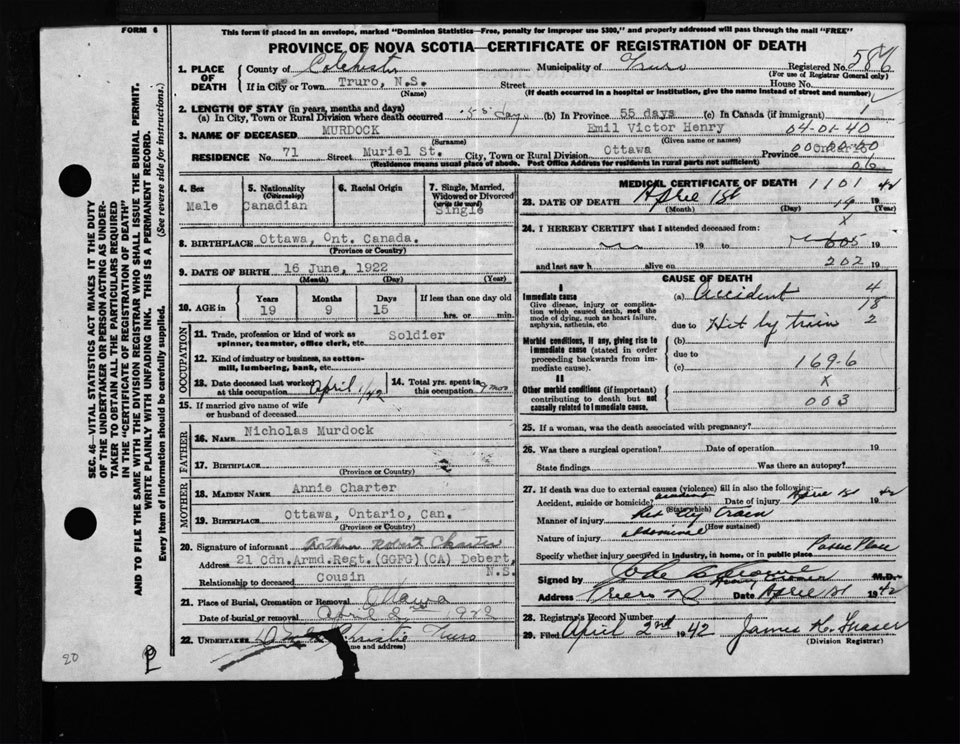 FORM 6
This form if placed in an envelope, marked "Dominion Statistics—Free, penalty for improper use $300," and properly addressed will pass through the mail "FREE"
PROVINCE OF NOVA SCOTIA—CERTIFICATE OF REGISTRATION OF DEATH
586
SEC. 46—VITAL STATISTICS ACT MAKES IT THE DUTY
OF THE UNDERTAKER OR PERSON ACTING AS UNDER-
TAKER TO OBTAIN ALL THE PARTICULARS REQUIRED
IN THE "CERTIFICATE OF REGISTRATION OF DEATH"
AND TO FILE THE SAME WITH THE DIVISION REGISTRAR WHO SHALL ISSUE THE BURIAL PERMIT.
WRITE PLAINLY WITH UNFADING INK. THIS IS A PERMANENT RECORD.
Every item of information should be carefully supplied. (See reverse side for instructions.)
1. PLACE OF DEATH
County of Colchester Municipality of Truro Registered No.
(For use of Registrar General only)
If in City or Town Truro, N.S. Street House No.
(Name) (If death occurred in a hospital or institution, give the name instead of street and number)
2. LENGTH OF STAY (in years, months and days)
(a) In City, Town or Rural Division where death occurred 55 days (b) In Province 55 days (c) In Canada (if immigrant)
1
3. NAME OF DECEASED MURDOCK Emil Victor Henry
(Surname) (Given name or names)
04-01-40
RESIDENCE No. 71 Street Muriel St. City, Town or Rural Division Ottawa Province Ontario
(Residence means usual place of abode. Post Office Address for residents in rural parts not sufficient)
06
4. Sex
Male
5. Nationality
(Citizenship)
Canadian
6. Racial Origin
7. Single, Married,
Widowed or Divorced
(write the word)
Single
8. BIRTHPLACE Ottawa, Ont. Canada.
(Province or Country)
9. DATE OF BIRTH 16 June, 1922
(Month) (Day) (Year)
10. AGE in
Years Months Days If less than one day old
19 9 15 hrs. or min.
OCCUPATION
11. Trade, profession or kind of work as
spinner, teamster, office clerk, etc. Soldier
12. Kind of industry or business, as cotton-
mill, lumbering, bank, etc.
13. Date deceased last worked
at this occupation April 1/42
14. Total yrs. spent in
this occupation
15. If married give name of wife
or husband of deceased
FATHER
16. NAME Nicholas Murdock
17. BIRTHPLACE
(Province or Country)
MOTHER
18. MAIDEN NAME Annie Charter
19. BIRTHPLACE Ottawa, Ontario, Can.
(Province or Country)
20. Signature of informant Arthur Robert Charter
Address 21 Cdn.Armd.Regt.(GGFG)(CA) Debert,
N.S.
Relationship to deceased Cousin
21. Place of Burial, Cremation or Removal Ottawa
Date of burial or removal April 2nd 942
22. UNDERTAKER Christie Truro
(Name and address)
MEDICAL CERTIFICATE OF DEATH
1101
23. DATE OF DEATH April 1st 19 42
(Month) (Day) (Year)
X
24. I HEREBY CERTIFY that I attended deceased from:
19 to 605 19
and last saw h alive on 202 19
CAUSE OF DEATH
I
Immediate cause
Give disease, injury or complica-
tion which caused death, not the
mode of dying, such as heart failure,
asphyxia, asthenia, etc
(a) Accident 4
18
due to Hit by train 2
Morbid conditions, if any, giving rise to
immediate cause (stated in order
proceeding backwards from im-
mediate cause).
(b)
due to
(c) 169-6
II
X
Other morbid conditions (if important)
contributing to death but not
causally related to immediate cause.
003
25. If a woman, was the death associated with pregnancy?
26. Was there a surgical operation? Date of operation 19
State findings Was there an autopsy?
27. If death was due to external causes (violence) fill in also the following:—
Accident, suicide or homicide? accident Date of injury April 1st 1942
(State which)
Manner of injury Hit by train
(How sustained)
Nature of injury abdominal
Specify whether injury occurred in industry, in home, or in public place Public Place
Signed by M.D.
Address Truro N.S. Date April 1st 1942
28. Registrar's Record Number
29. Filed April 2nd 1942 James H. Fraser
(Division Registrar)
20